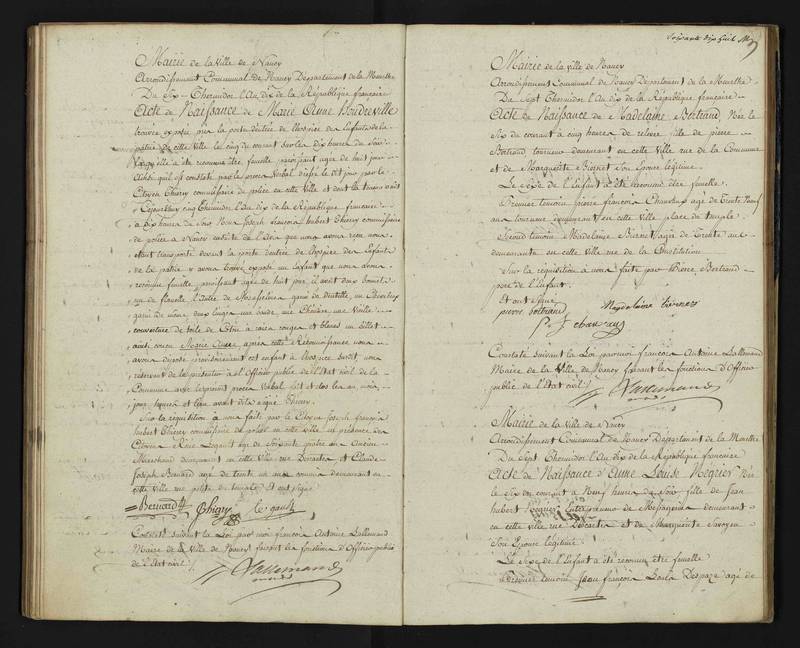 Mairie de la Ville de Nancy
Arrondissement Communal de Nancy Département de la Meurthe
Du Six Thermidor l'an Dix de la République française
Acte de Naissance de Marie Anne
trouvée exposée près la porte d'entrée de l'hospice des Enfants de la
patrie de cette ville le cinq du courant sur les dix heures du soir
elle a été reconnu être femelle paroissant agée de huit jours
Ainsi qu'il est constaté par le procès verbal dressé le dit jour par le
Citoyen Thiery commissaire de police en cette ville et dont la teneur suit
Cejourd'huy cinq Thermidor l'an dix de la République française
à dix heures du soir Nous Joseph françois hubert Thiery commissaire
de police à Nancy ensuite de l'avis que nous avons reçu nous
étant transporté devant la porte d'entrée de l'hospice des Enfants
de la patrie y avons trouvé exposé un Enfant que nous avons
reconnu femelle paroissant agée de huit jours, il avoit deux bonnets
un de flanelle l'autre de garni de dentelle, un
garni de même, deux langes, une une Chemise, une Vieille
couverture de toile de Coton à raies rouges et blanches un billet
ainsi conçu Marie Anne, après cette Reconnoissance nous
avons déposé provisoirement cet enfant à l'hospice susdit nous
reservant de le présenter à l'Officier public de l'Etat civil de la
Commune avec le présent procès Verbal fait et clos les an, mois,
jour, heures et lieu avant dits signé Thiery.
Sur la réquisition à nous faite par le Citoyen Joseph françois
hubert Thiery commissaire de police en cette ville en présence des
Citoyens René Legault agé de Soixante quatre ans Ancien
Marchand demeurant en cette Ville rue Descartes et Claude
Joseph Bernard agé de trente un ans commis demeurant en
cette Ville rue Et ont signé
Bernard Thiery le gault
Constaté suivant la Loi par moi françois Antoine Lallemand
Maire de la Ville de Nancy faisant les fonctions d'Officier public
de l'Etat civil.
Lallemand
Soixante dix huit
Mairie de la Ville de Nancy
Arrondissement Communal de Nancy Département de la Meurthe
Du Sept Thermidor l'an dix de la République française
Acte de Naissance de Madelaine Bertrand Née le
Six du courant à cinq heures de relevé fille de pierre
Bertrand tourneur demeurant en cette Ville rue de la Commune
et de Marguerite Son épouse légitime.
Le Sexe de l'Enfant a été reconnu être femelle.
Premier témoin pierre françois agé de Trente
ans tourneur demeurant en cette ville place du temple.
Second témoin Madelaine agée de Trente ans
demeurante en cette ville rue de la Constitution
Sur la réquisition à nous faite par Pierre Bertrand
père de l'Enfant.
Et ont signé
pierre bertrand
Constaté suivant la Loi par moi françois Antoine Lallemand
Maire de la Ville de Nancy faisant les fonctions d'Officier
public de l'Etat civil.
Lallemand
Mairie de la Ville de Nancy
Arrondissement Communal de Nancy Département de la Meurthe
Du Sept Thermidor l'an dix de la République française
Acte de Naissance d'Anne Louise Negrier Née
le Six du courant à Neuf heures du soir fille de Jean
hubert Negrier Entrepreneur de Messageries demeurant
en cette ville rue Descartes et de Marguerite
Son Epouse légitime.
Le Sexe de l'Enfant a été reconnu être femelle
Premier témoin Jean françois Louis Despaze agé de